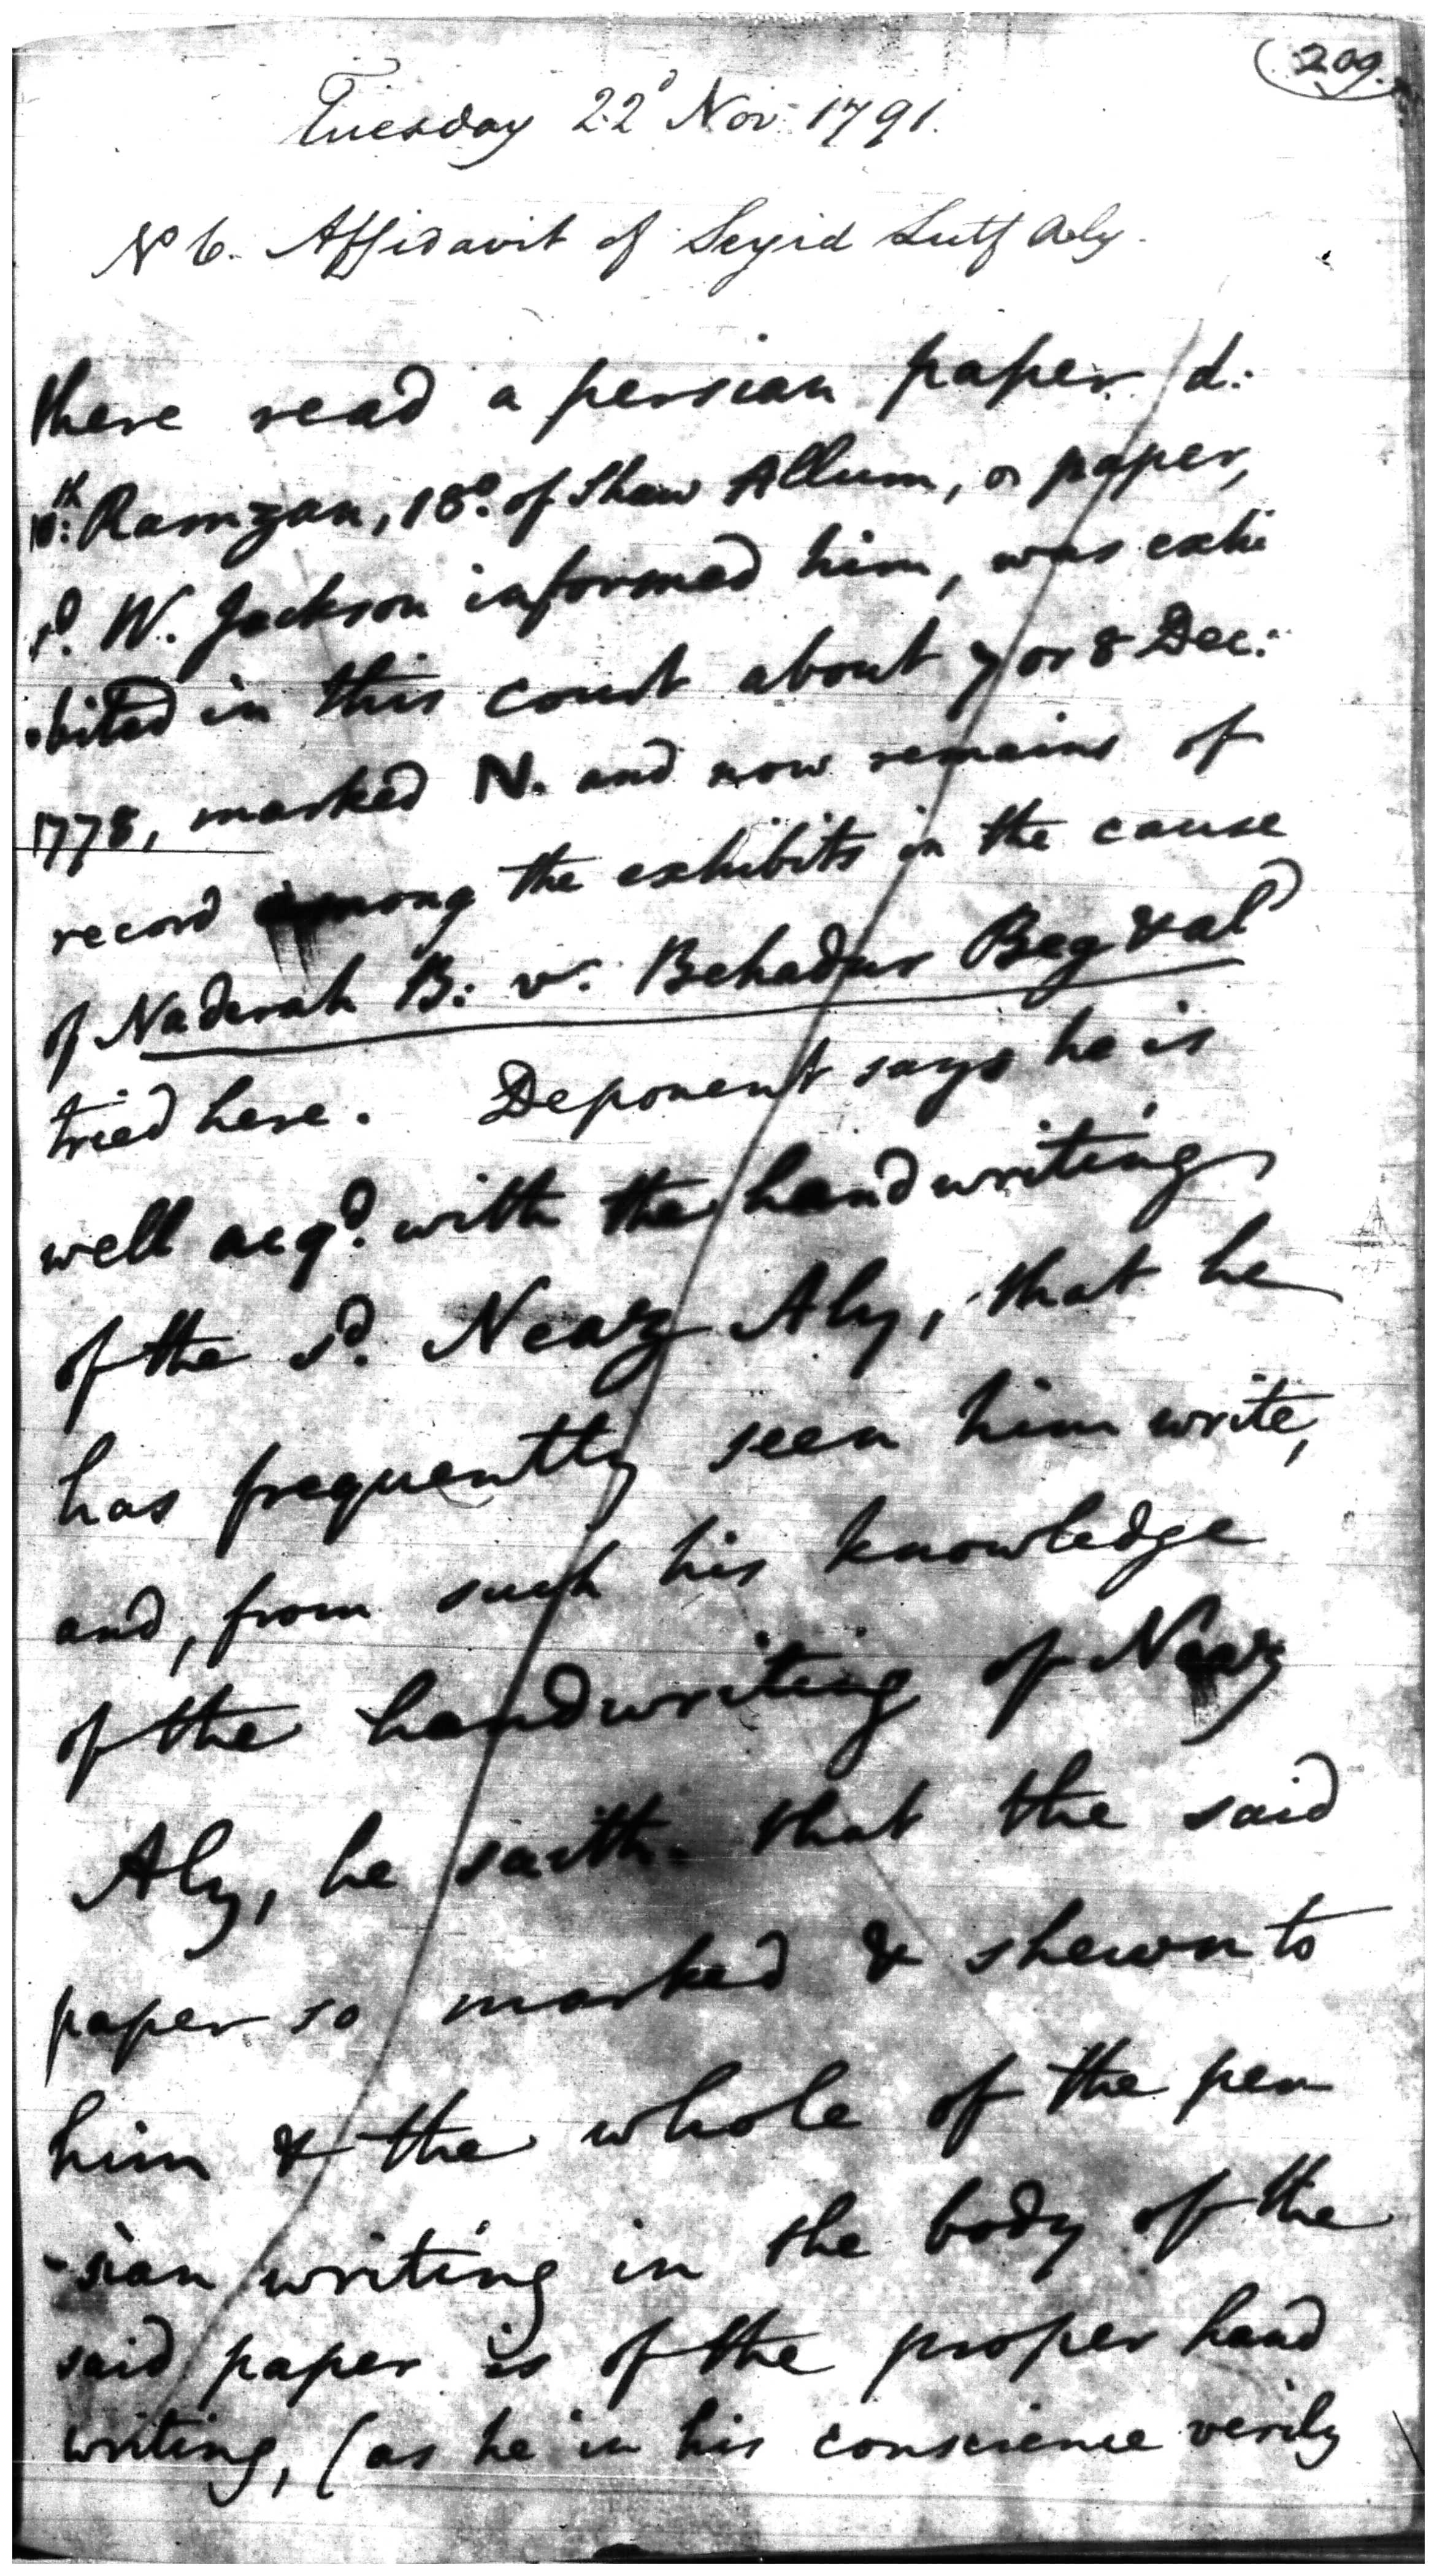 209.
Tuesday 22d Nov: 1791.
No 6. Affidavit of Seyid Lutf Aly.
there read a persian paper d:
10:th Ramzan, 18o. of Shaw Allum, a paper,
sd. W. Jackson informed him, was exhi
-bited in this court about 7 or 8 Dec:
1778, marked N. and now remains of
record among the exhibits in the cause
of Naderah B: v. Behadur Beg & al
tried here. Deponent says he is
well acqd. with the handwriting
of the sd. Neaz Aly, that he
has frequently seen him write,
and, from such his knowledge
of the handwriting of Neaz
Aly, he saith that the said
paper so marked & shewn to
him & the whole of the per
-sian writing in the body of the
said paper is of the proper hand
writing, (as he in his conscience verily